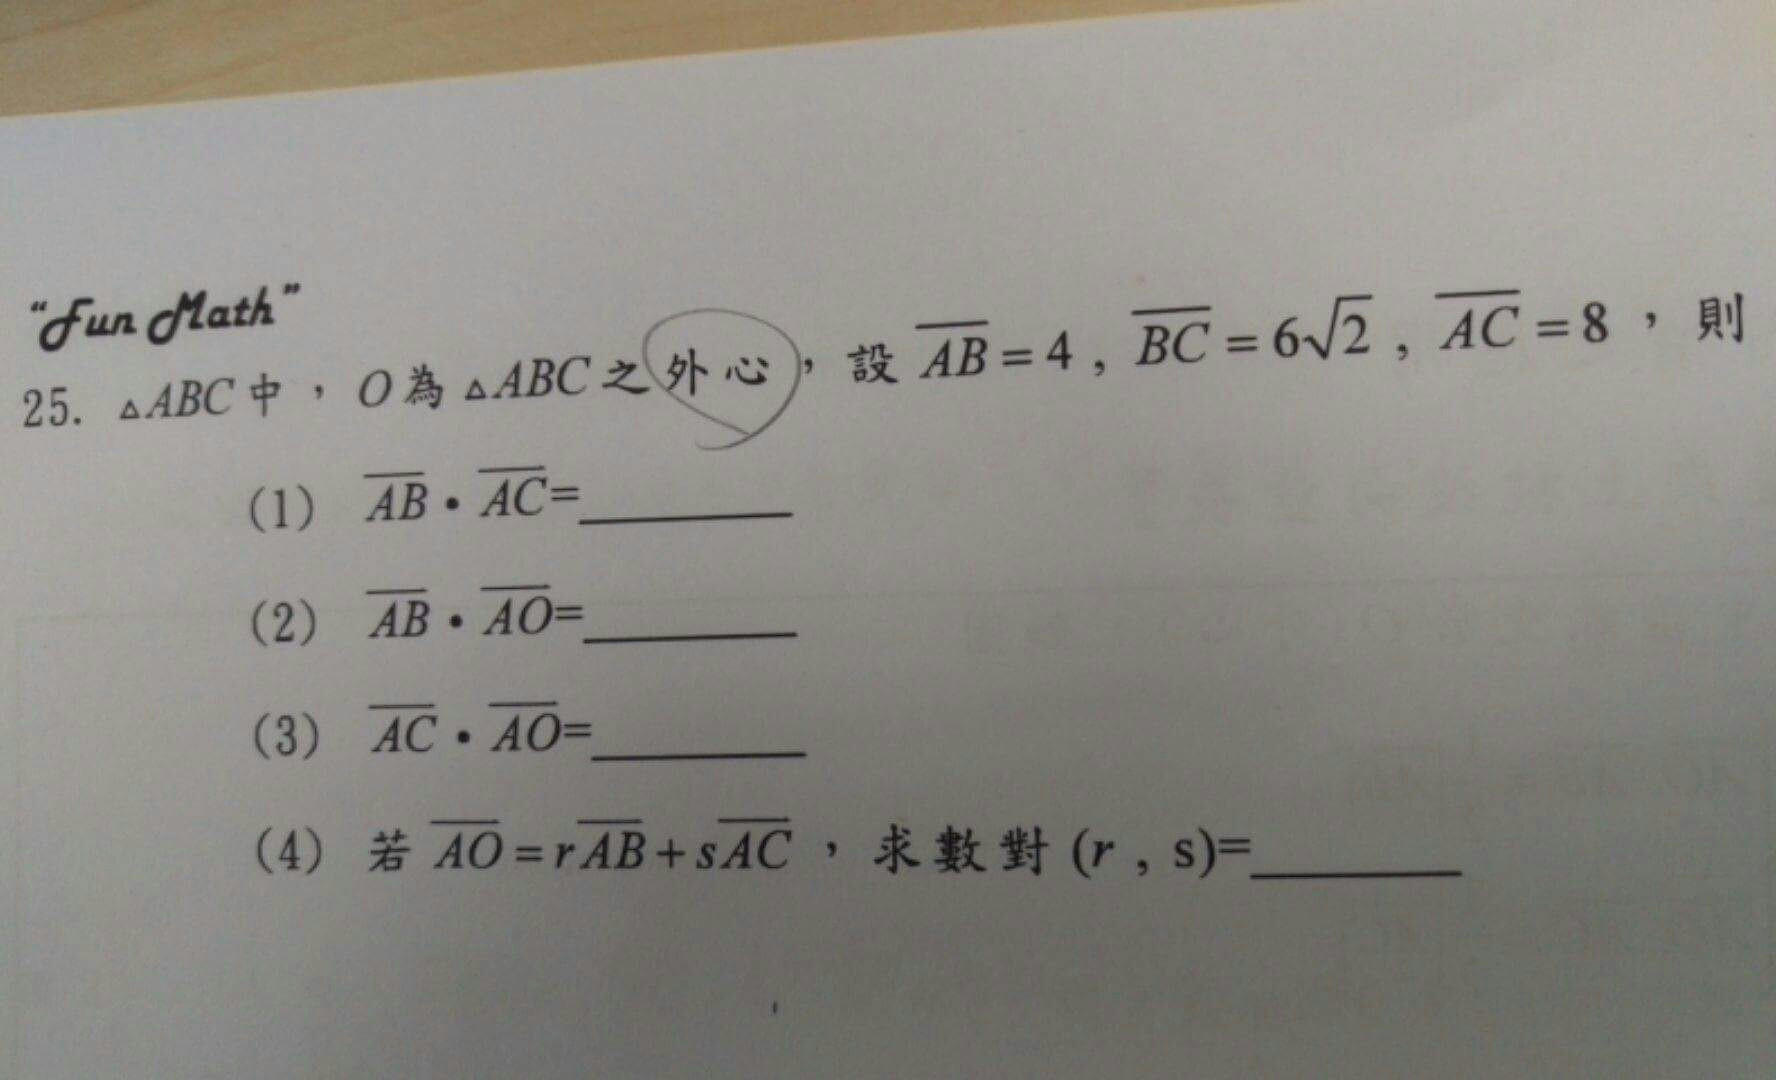 “Fun Math”
25. △ABC 中，O 為 △ABC 之外心，設 \overline{AB} = 4 , \overline{BC} = 6√2 , \overline{AC} = 8 ，則
(1) \overline{AB} • \overline{AC}=______
(2) \overline{AB} • \overline{AO}=______
(3) \overline{AC} • \overline{AO}=______
(4) 若 \overline{AO} = r\overline{AB} + s\overline{AC} ，求數對 (r , s)=______